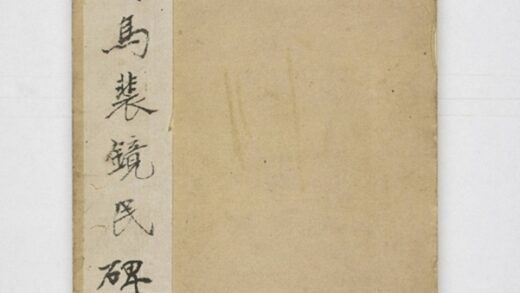 馬裴鏡民碑